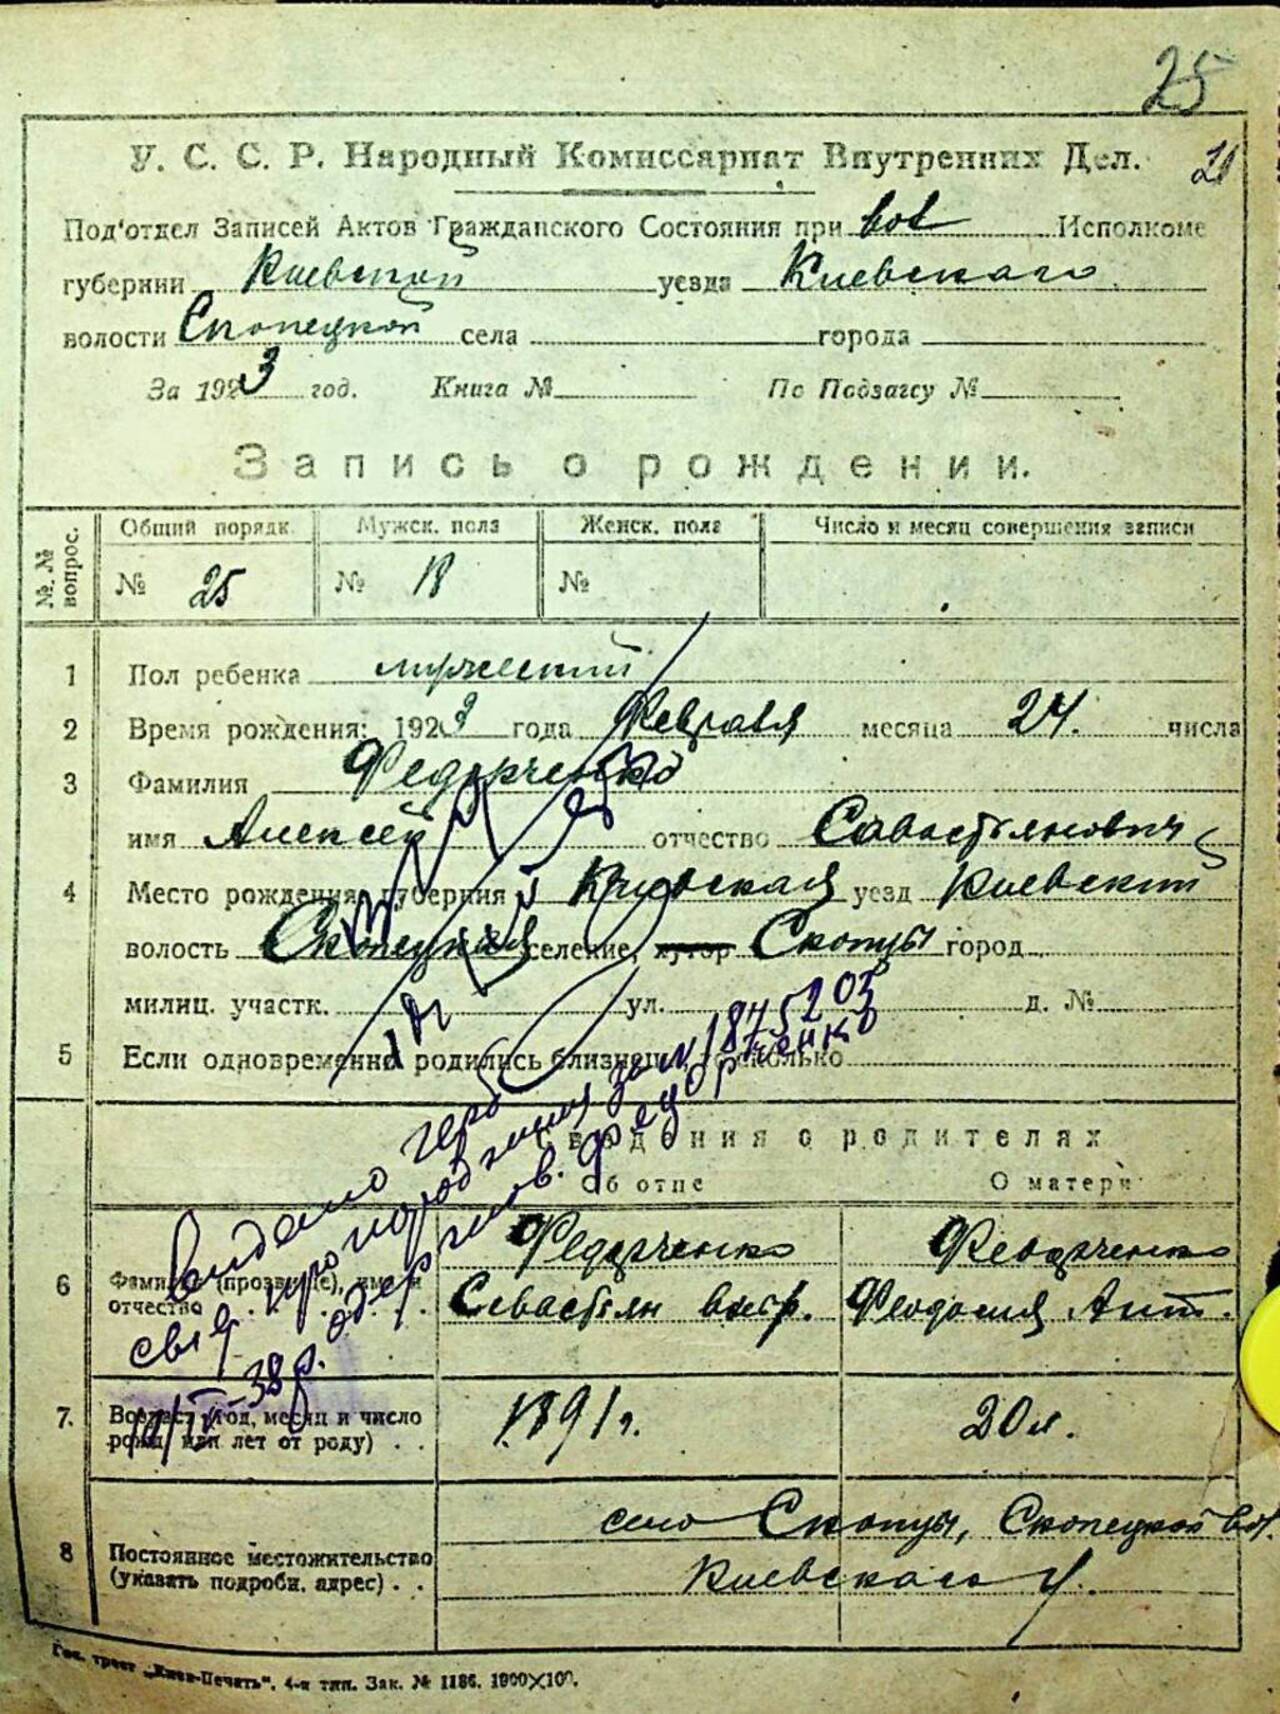 25
У. С. С. Р. Народный Комиссариат Внутренних Дел.
21
Под'отдел Записей Актов Гражданского Состояния при вол Исполкоме
губернии Киевской уезда Киевского
волости Скопецкой села города
За 1923 год. Книга № По Подзагсу №
Запись о рождении.
№.№ вопрос.
Общий порядк. Мужск. пола Женск. пола Число и месяц совершения записи
№ 25 № 18 №
1 Пол ребенка мужеский
2 Время рождения: 1923 года Февраля месяца 24. числа
3 Фамилия Федорченко
имя Алексей отчество Савастьянович
4 Место рождения, губерния Киевская уезд Киевский
волость Скопецкая селение, хутор Скопцы город
милиц. участк. ул. д. №
5 Если одновременно родились близнецы, то сколько
Сведения о родителях
Об отце О матери
6 Фамилия (прозвище), имя и отчество Федорченко Севастьян Феодорченко Феодосия Ант.
Видано герб
свід. про народження за № 1875203
10/IV-38р. одержив. Федорченко
7. Возраст (год, месяц и число рожд. или лет от роду) . . 1891 г. 20 л.
8 Постоянное местожительство (указать подробн. адрес) . . село Скопцы, Скопецкой вол.
Киевского у.
Гос. трест „Киев-Печать“. 4-я тип. Зак. № 1186. 1900×100.